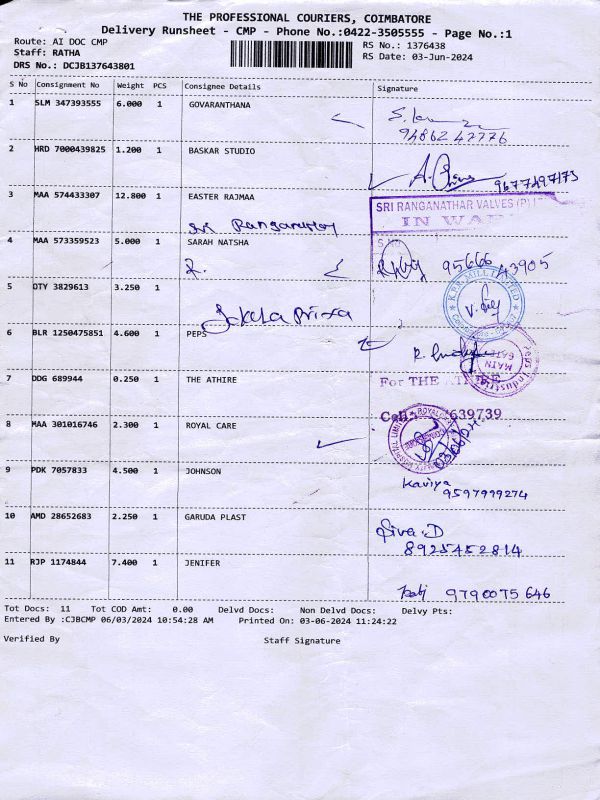 THE PROFESSIONAL COURIERS, COIMBATORE
Delivery Runsheet - CMP - Phone No.:0422-3505555 - Page No.:1
Route: AI DOC CMP
Staff: RATHA
DRS No.: DCJB137643801
RS No.: 1376438
RS Date: 03-Jun-2024
S No Consignment No Weight PCS Consignee Details Signature
1 SLM 347393555 6.000 1 GOVARANTHANA
94862 42776
2 HRD 7000439825 1.200 1 BASKAR STUDIO
9677497173
3 MAA 574433307 12.800 1 EASTER RAJMAA
SRI RANGANATHAR VALVES (P)
Sri Ranganathar
4 MAA 573359523 5.000 1 SARAH NATSHA
95666 43905
5 OTY 3829613 3.250 1
6 BLR 1250475851 4.600 1 PEPS
MAIN GATE
7 DDG 689944 0.250 1 THE ATHIRE
For THE
639739
8 MAA 301016746 2.300 1 ROYAL CARE
9 PDK 7057833 4.500 1 JOHNSON
Kaviya
9597999274
10 AMD 28652683 2.250 1 GARUDA PLAST
Siva.D
8925452814
11 RJP 1174844 7.400 1 JENIFER
9790075 646
Tot Docs: 11 Tot COD Amt: 0.00 Delvd Docs: Non Delvd Docs: Delvy Pts:
Entered By :CJBCMP 06/03/2024 10:54:28 AM Printed On: 03-06-2024 11:24:22
Verified By Staff Signature